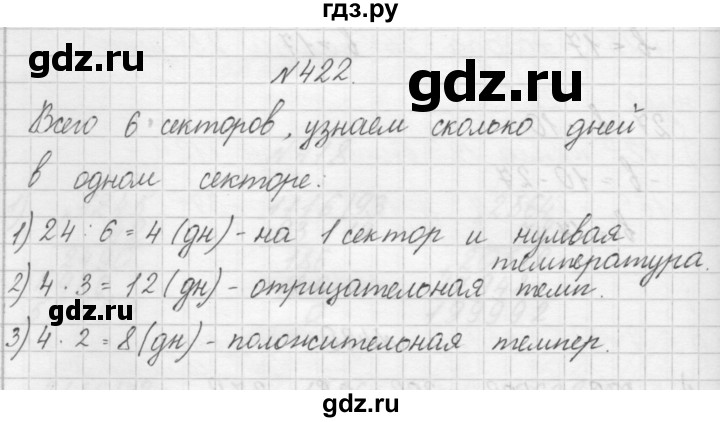 гдз.ру
gdz.ru
№422.
gdz.ru
Всего 6 секторов, узнаем сколько дней
в одном секторе:
1) 24 : 6 = 4 (дн) - на 1 сектор и нулевая
температура.
2) 4 · 3 = 12 (дн) - отрицательная темп.
gdz.ru
3) 4 · 2 = 8 (дн) - положительная темпер.
gdz.ru